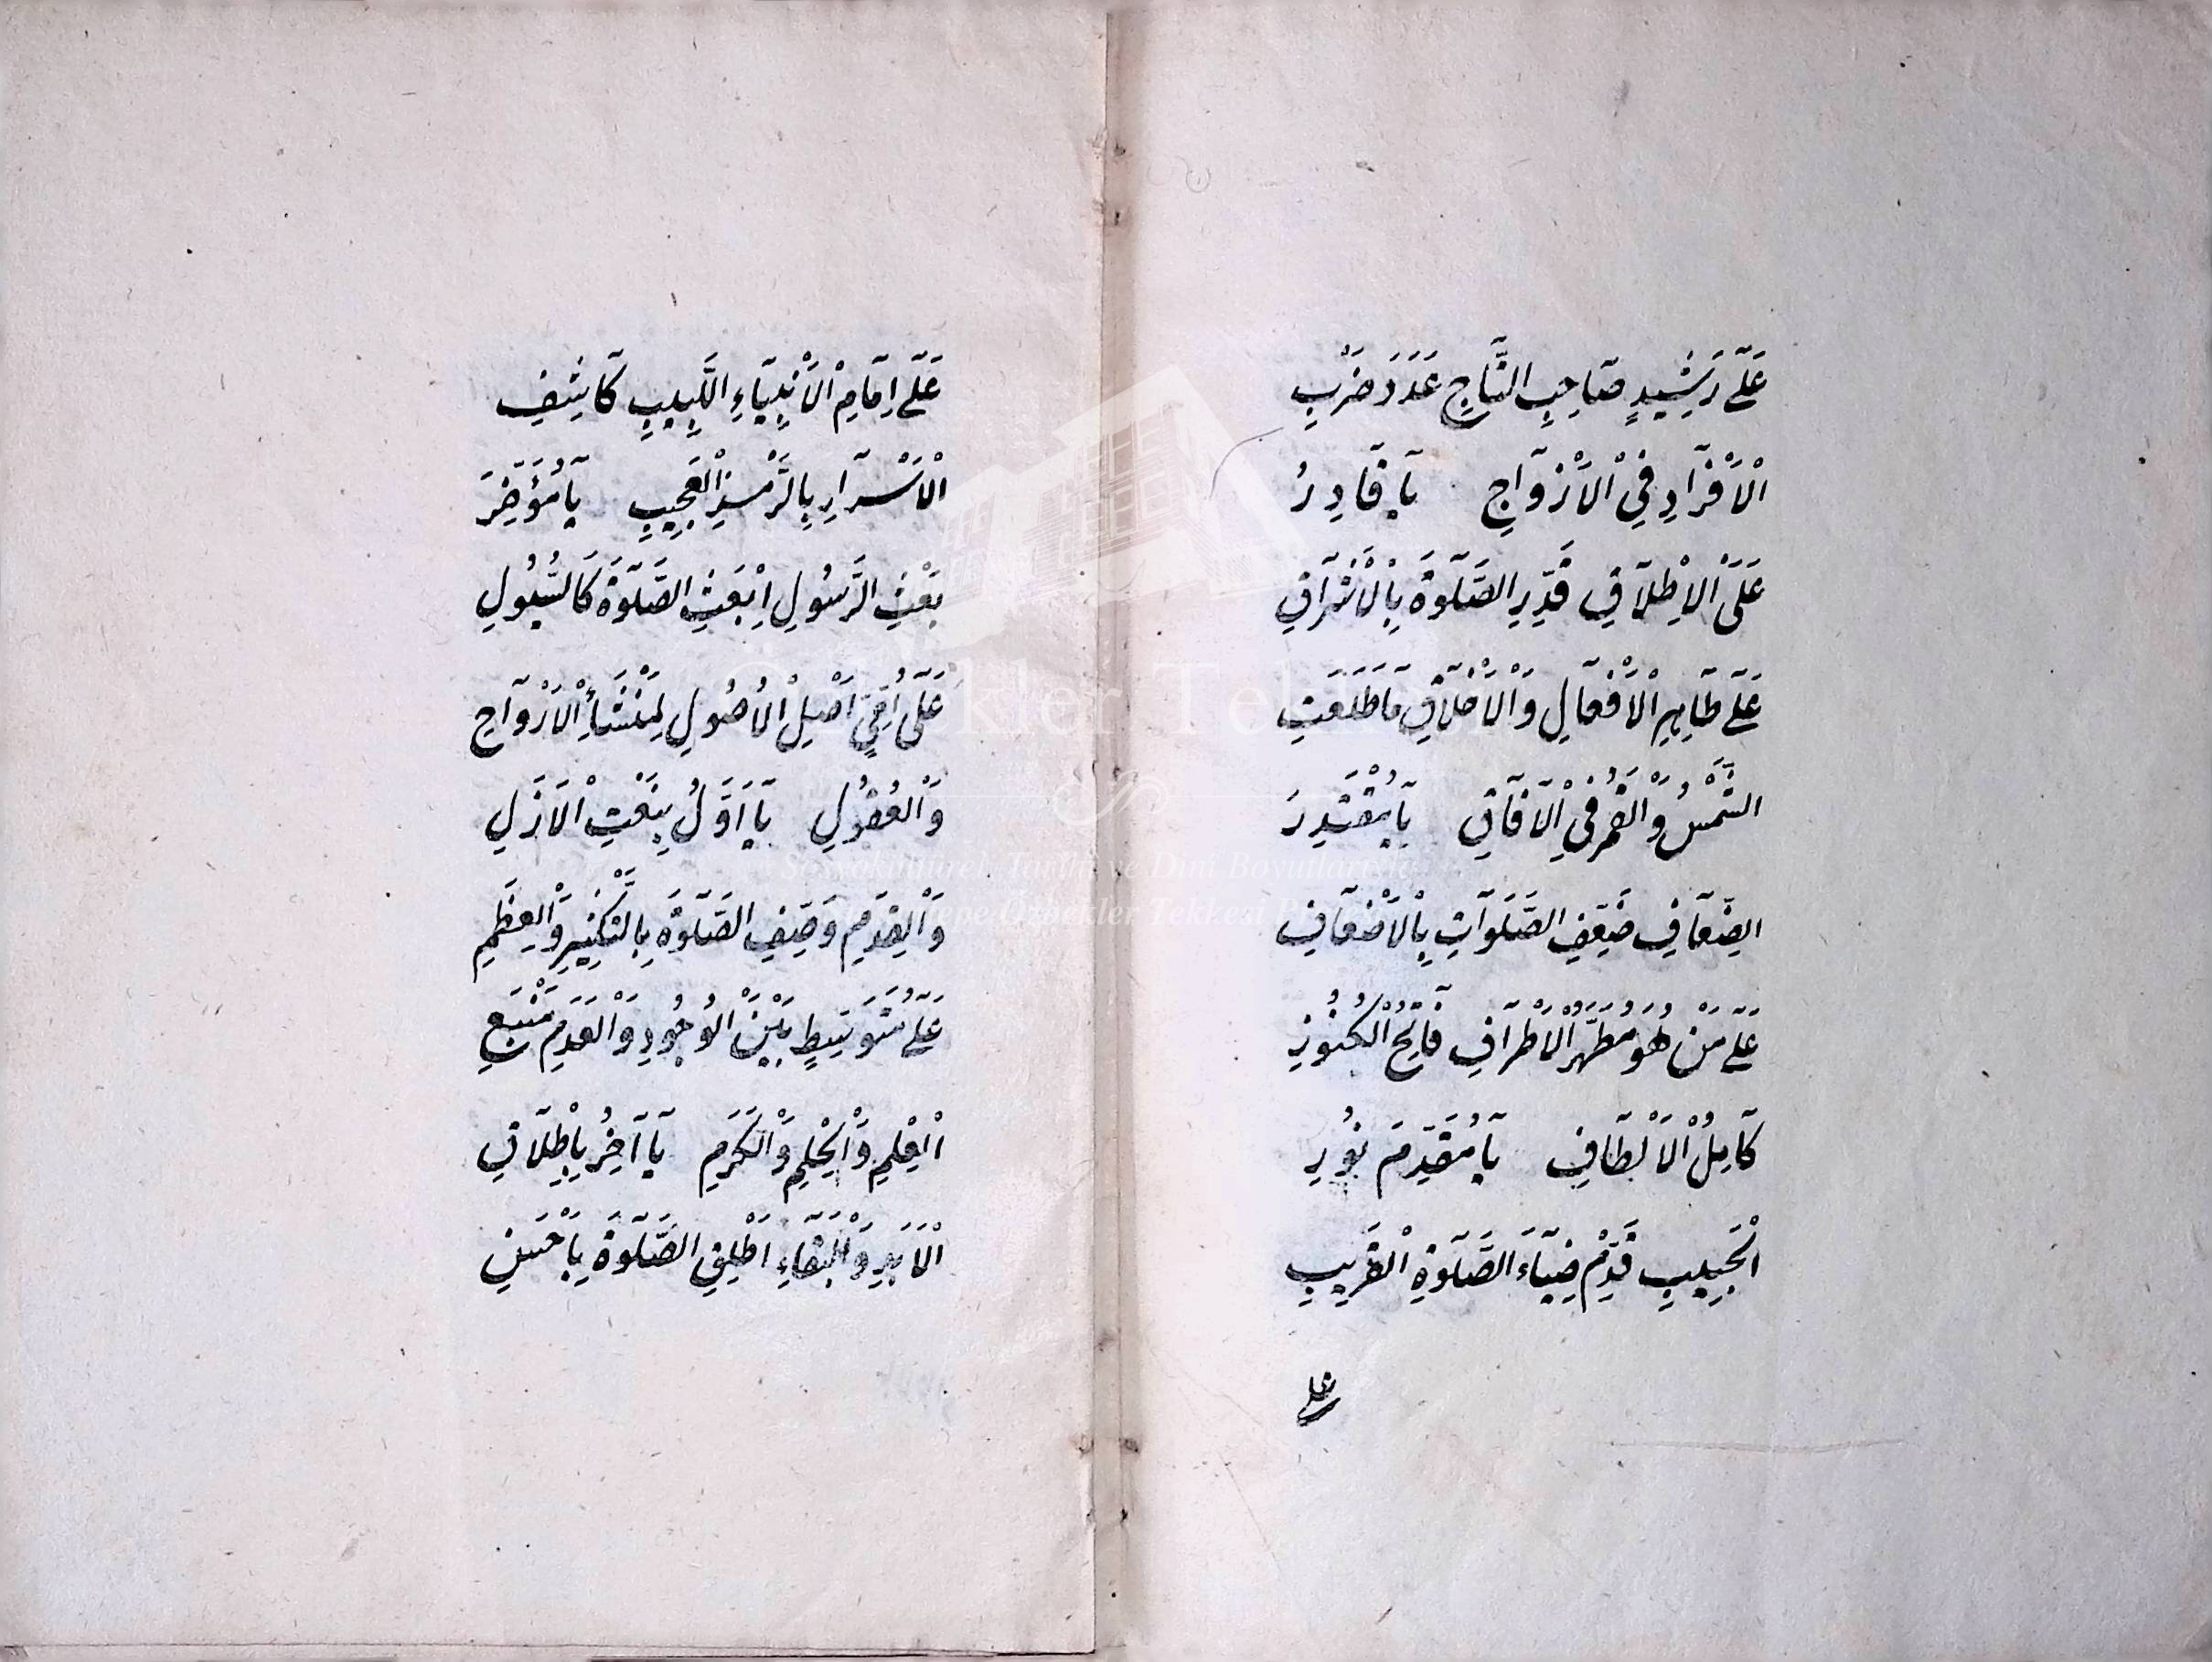 عَلَى رَشِيدٍ صَاحِبِ التَّاجِ عَدَدَ ضَرْبِ
الْاَفْرَادِ فِي الْاَزْوَاجِ يَا قَادِرُ
عَلَى الْاِطْلَاقِ قَدِّرِ الصَّلَوةَ بِالْاَشْرَاقِ
عَلَى طَاهِرِ الْاَفْعَالِ وَالْاَخْلَاقِ مَا طَلَعَتِ
الشَّمْسُ وَالْقَمَرُ فِي الْآفَاقِ يَا مُقْتَدِرَ
الضِّعَافِ ضَعِّفِ الصَّلَوَاتِ بِالْاَضْعَافِ
عَلَى مَنْ هُوَ مُطَهَّرُ الْاَطْرَافِ فَاتِحُ الْكُنُوزِ
كَامِلُ الْاَلْطَافِ يَا مُقَدِّمَ نُورِ
الْحَبِيبِ قَدِّمْ ضِيَاءَ الصَّلَوةِ الْقَرِيبِ
على
عَلَى اِمَامِ الْاَنْبِيَاءِ اللَّبِيبِ كَاشِفِ
الْاَسْرَارِ بِالرَّمْزِ الْعَجِيبِ يَا مُؤَخِّرَ
بَعْثِ الرَّسُولِ اِبْعَثِ الصَّلَوةَ كَالسُّيُولِ
عَلَى اُمِّيٍّ اَصْلِ الْاُصُولِ لِمَنْشَأِ الْاَرْوَاحِ
وَالْعُقُولِ يَا اَوَّلُ بِنَعْتِ الْاَزَلِ
وَالْقِدَمِ وَصِّفِ الصَّلَوةَ بِالتَّكْثِيرِ وَالْعِظَمِ
عَلَى مُتَوَسِّطٍ بَيْنَ الْوُجُودِ وَالْعَدَمِ مَنْبَعِ
الْعِلْمِ وَالْحِلْمِ وَالْكَرَمِ يَا آخِرُ بِاِطْلَاقِ
الْاَبَدِ وَالْبَقَاءِ اَطْلِقِ الصَّلَوةَ بِاَحْسَنِ